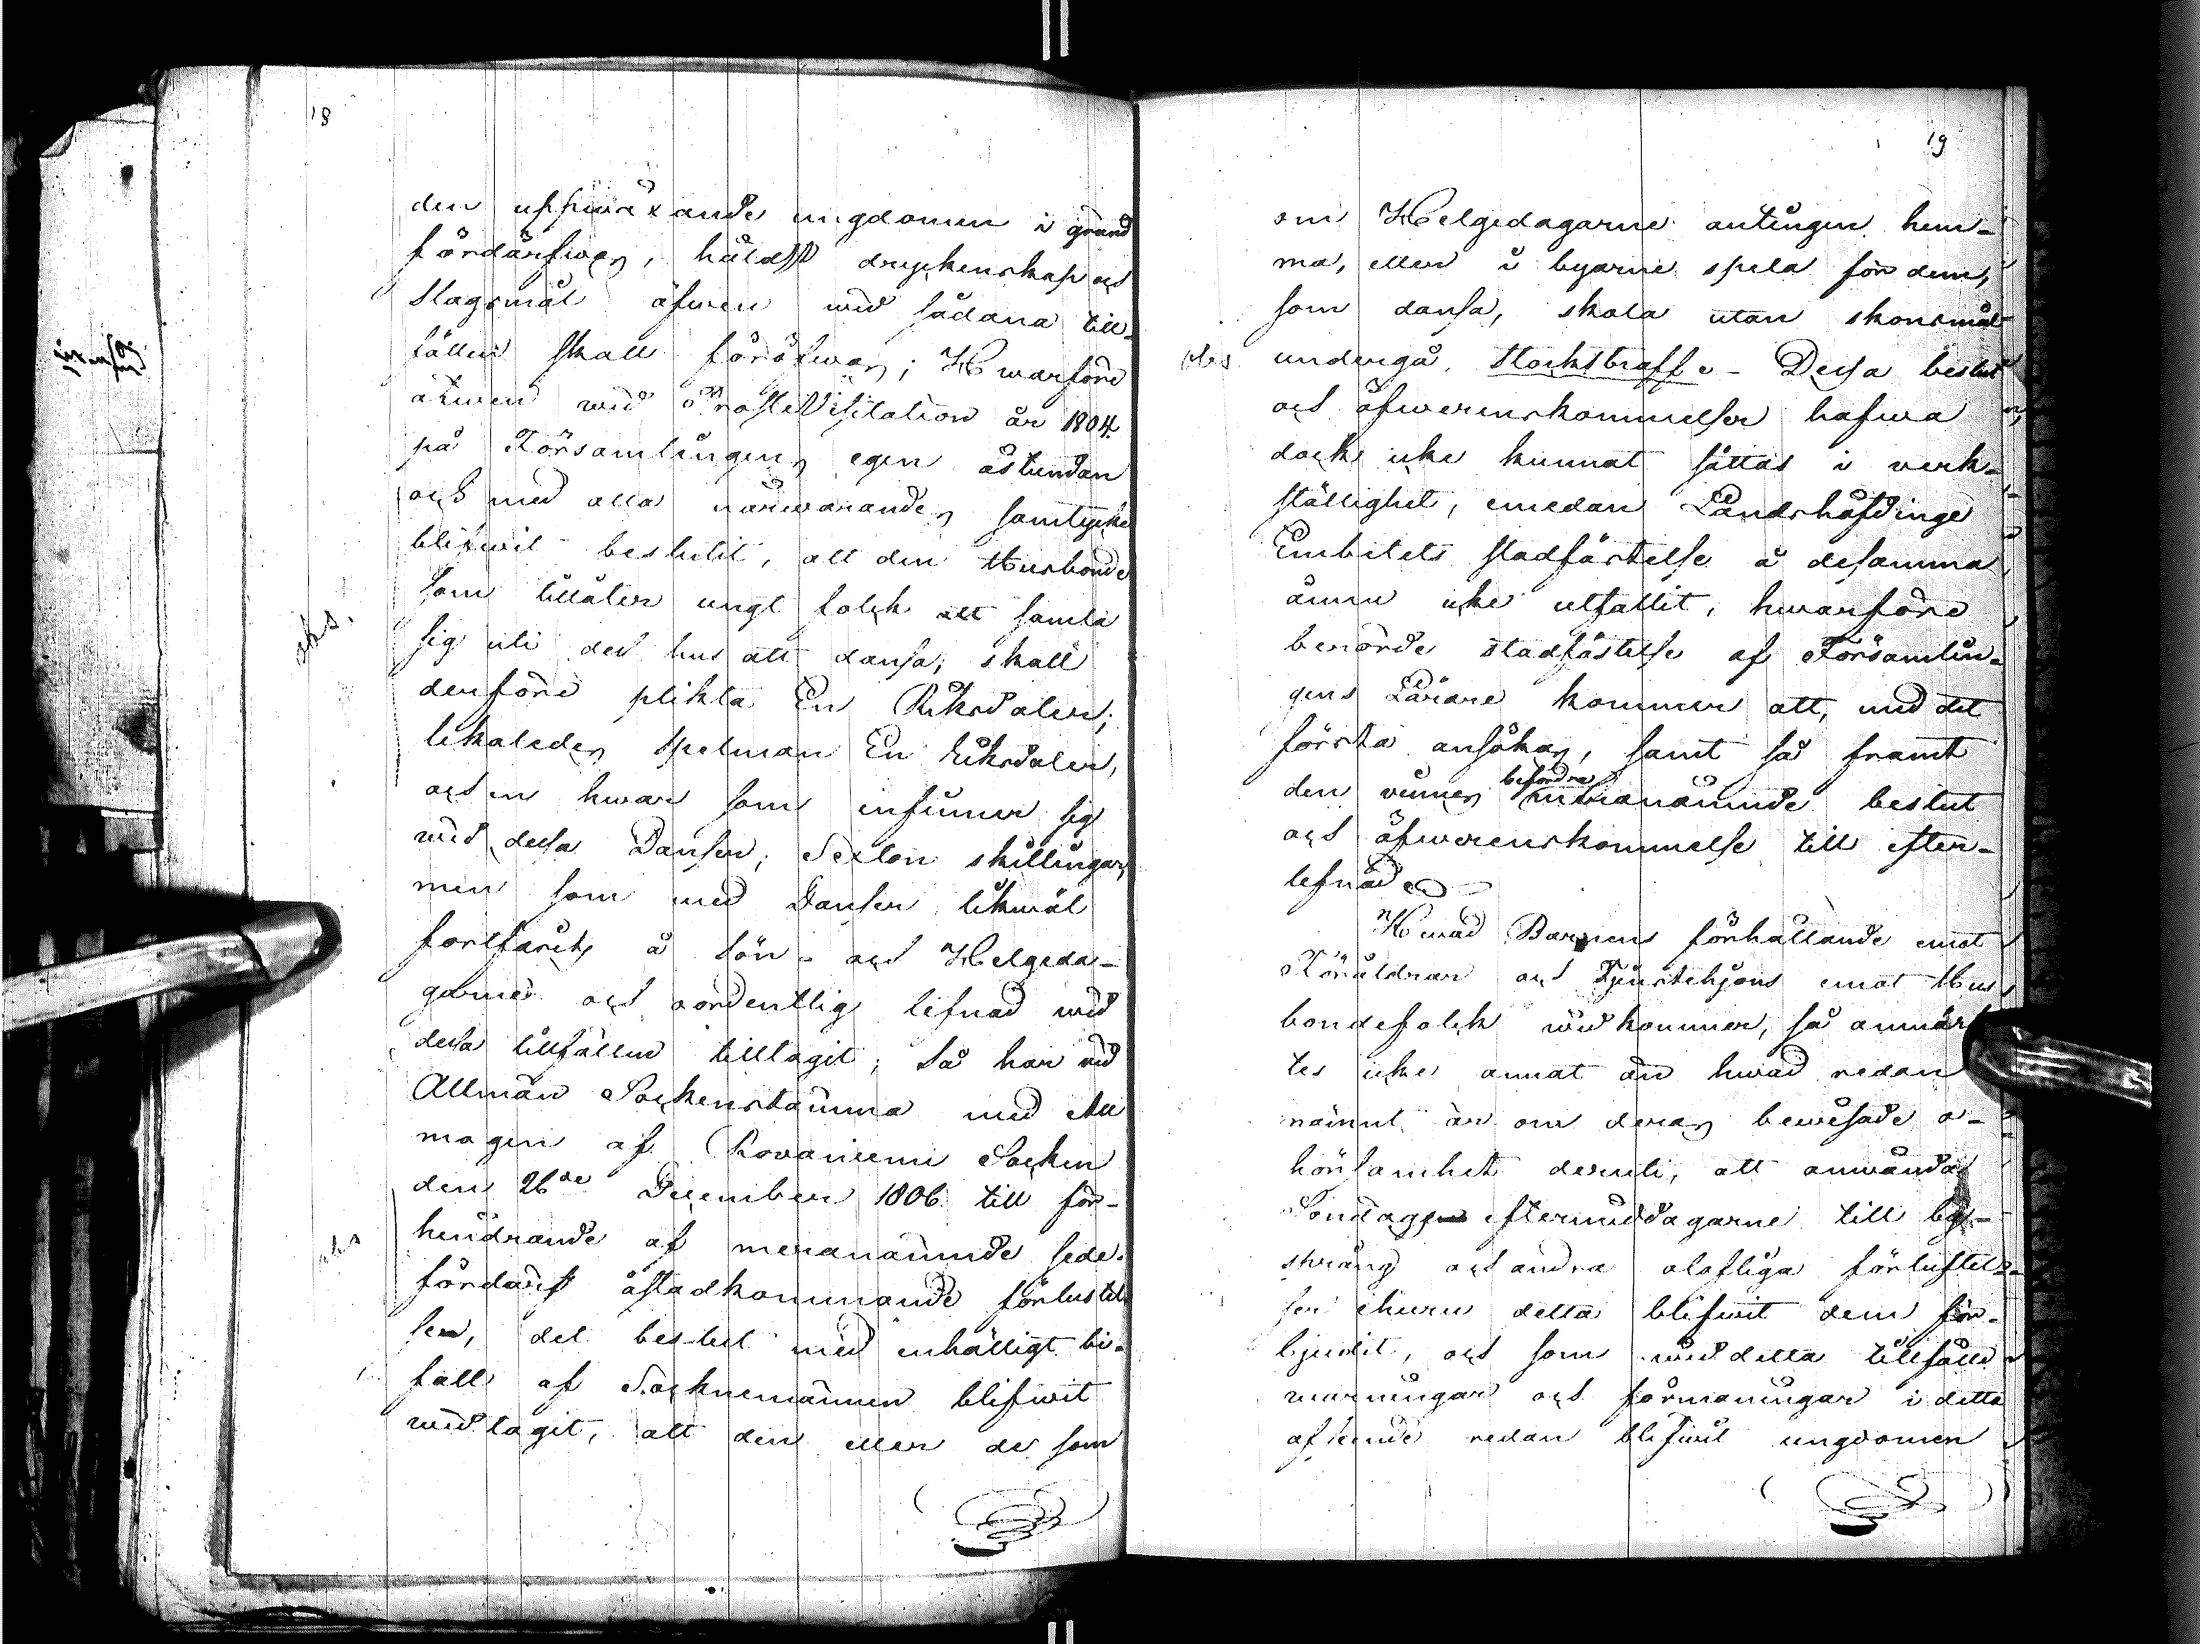 18
den uppwäxande ungdomen i grund
fördärfwas, häldst dryckenskap och
slagsmål äfwen wid sådana till-
fällen skall föröfwas; Hwarföre
äfwen wid ProsteVisitation år 1804.
på Församlingens egen åstundan
och med alla närwarandes samtycke
blifwit beslutit, att den Husbonde
obs.
som tillåter ungt folck att samla
sig uti des hus att dansa, skall
derföre plikta En Riksdaler;
lekaledes Spelman En Riksdaler,
och en hwar som infinner sig
wid dessa Danser, Sexton skillingar,
men som med Danser likwäl
fortfarits å Sön- och Helgeda-
garne och oordentlig lefnad wid
dessa tillfällen tilltagit; så har wid
Allmän Sockenstämma med All
mogen af Rovaniemi Socken
den 26de December 1806 till för-
obs
hindrande af meranämnde sede-
fördärf åstadkommande förlustel
ser, det beslut med enhälligt bi-
fall af Socknemännen blifwit
widtagit, att den eller de som
19
om Helgedagarne antingen hem-
ma, eller i byarne spela för dem,
som dansa, skola utan skonsmål
obs
undergå Stockstraff. - Dessa beslut
och öfwerenskommelser hafwa
dock icke kunnat sättas i werk-
ställighet, emedan Landshöfdinge
Embetets stadfästelse å desamma
ännu icke utfallit, hwarföre
berörde stadfästelse af Församlin-
gens Lärare kommer att, med det
första ansökas, samt så framt
den winnes befordra meranämnde beslut
och öfwerenskommelse till efter-
lefnad.
Hwad Barnens förhållande emot
Föräldrar och Tjenstehjons emot Hus
bondefolck widkommer, så anmärk
tes icke annat än hwad redan
nämnt är om deras bewisade o-
hörsamhet deruti, att anwända
Söndags eftermiddagarne till by-
spräng och andra olofliga förlustel-
ser ehuru detta blifwit dem för-
bjudit, och som wid detta tillfälle
warningar och förmaningar i detta
afseende redan blifwit ungdomen